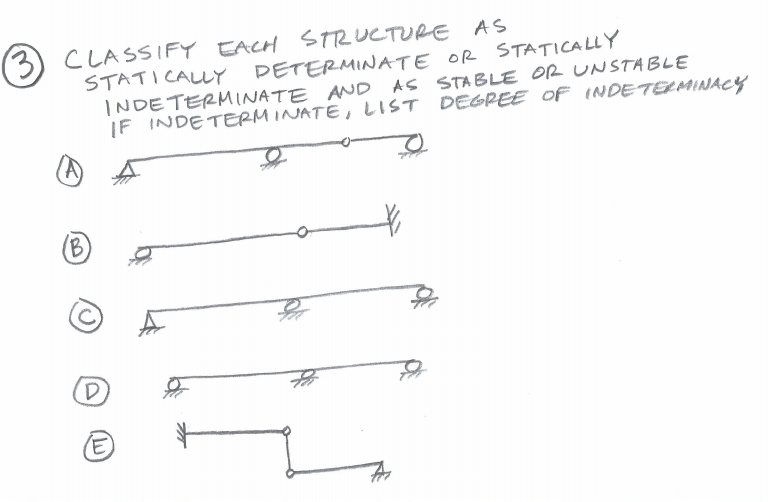 3 CLASSIFY EACH STRUCTURE AS
STATICALLY DETERMINATE OR STATICALLY
INDETERMINATE AND AS STABLE OR UNSTABLE
IF INDETERMINATE, LIST DEGREE OF INDETERMINACY
A
B
C
D
E